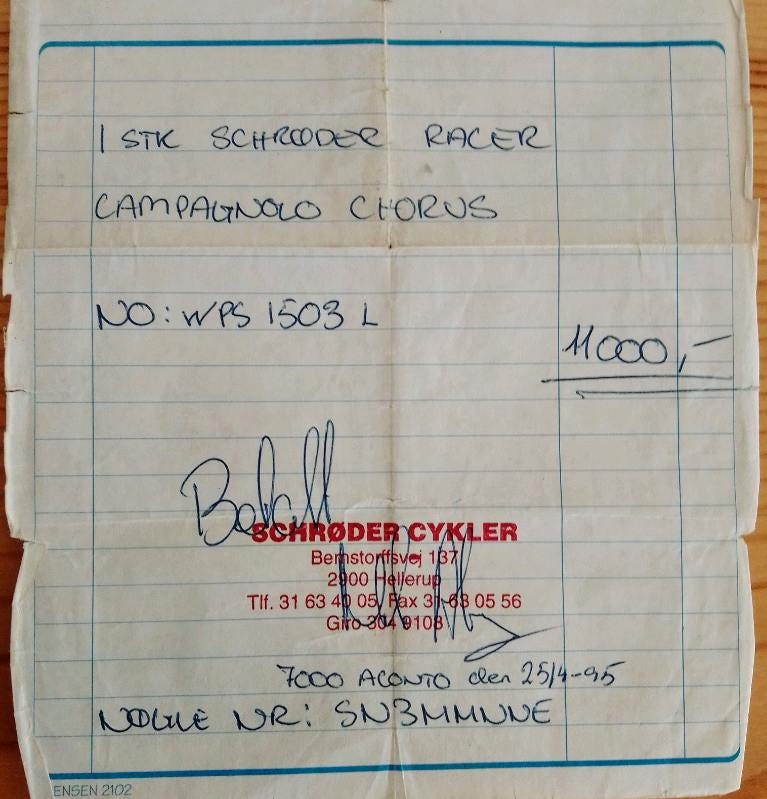 1 STK SCHRØDER RACER
CAMPAGNOLO CHORUS
NO: WPS 1503 L
11000,-
Betalt
SCHRØDER CYKLER
Bernstorffsvej 137
2900 Hellerup
Tlf. 31 63 40 05 Fax 31 63 05 56
Giro 304 9108
7000 ACONTO den 25/4-95
NØGLE NR: SN3MMNNE
ENSEN 2102